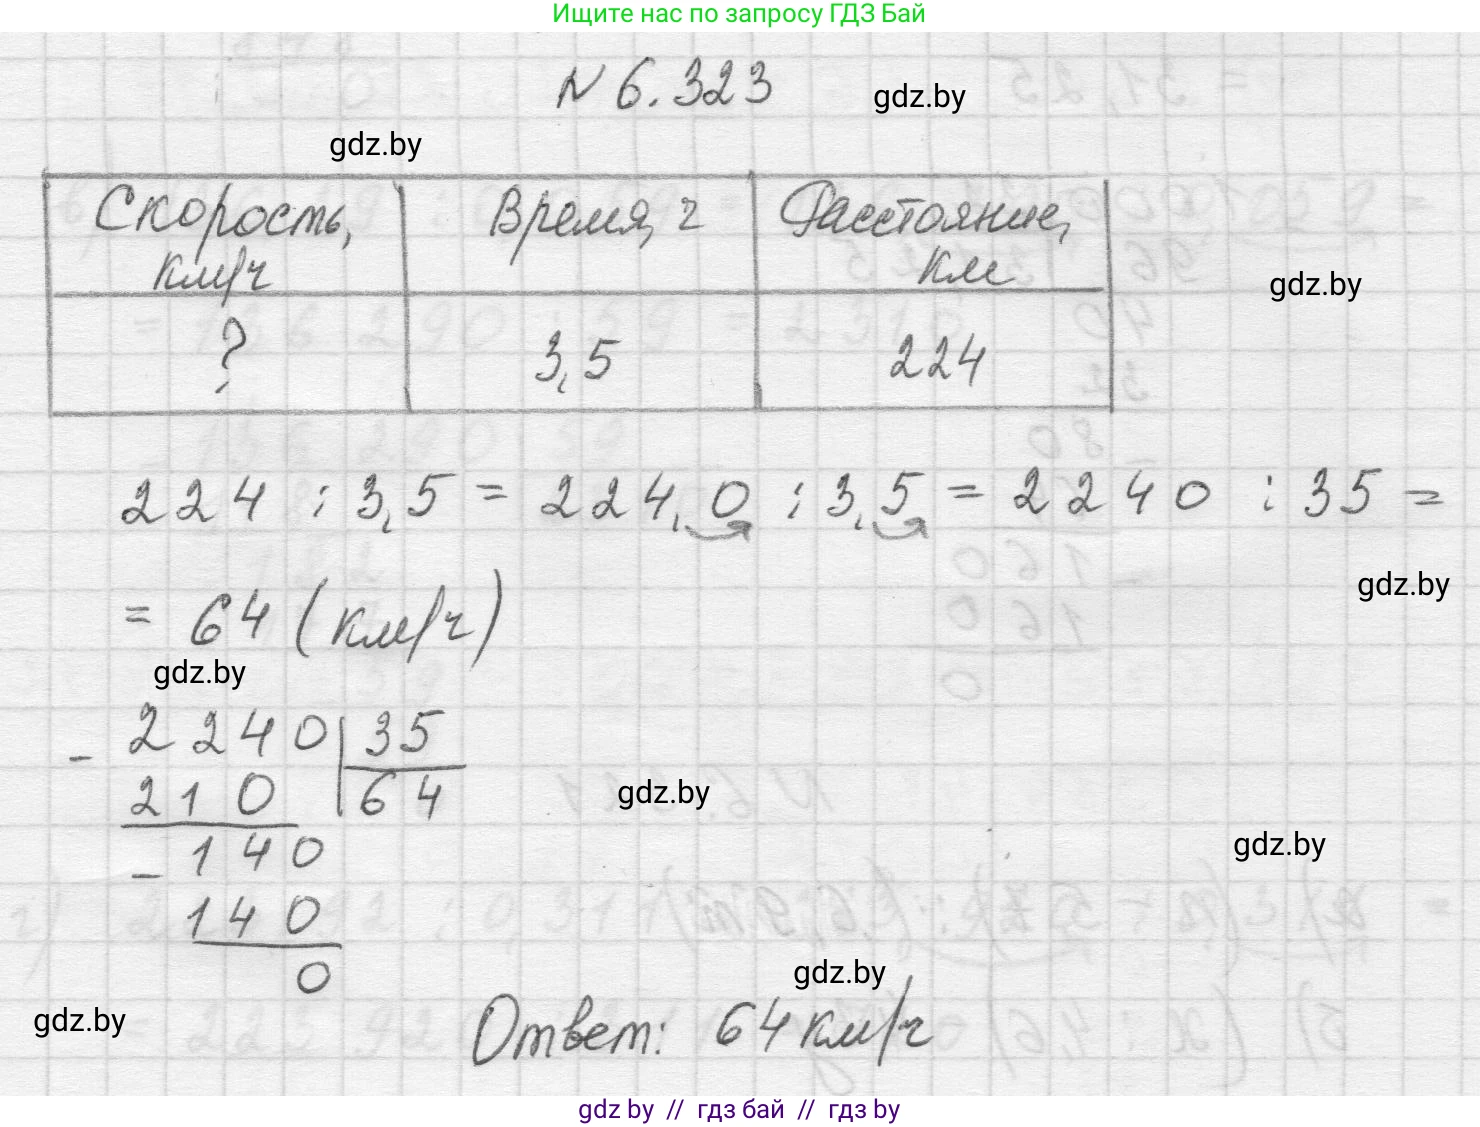 Ищите нас по запросу ГДЗ Бай
N 6.323
gdz.by
gdz.by
Скорость, км/ч
Время, ч
Расстояние, км
gdz.by
?
3,5
224
224 : 3,5 = 224,0 : 3,5 = 2240 : 35 =
gdz.by
= 64 (км/ч)
gdz.by
- 2240 | 35
210 | 64
gdz.by
- 140
gdz.by
140
0
gdz.by
gdz.by
Ответ: 64 км/ч
gdz by // гдз бай // гдз by